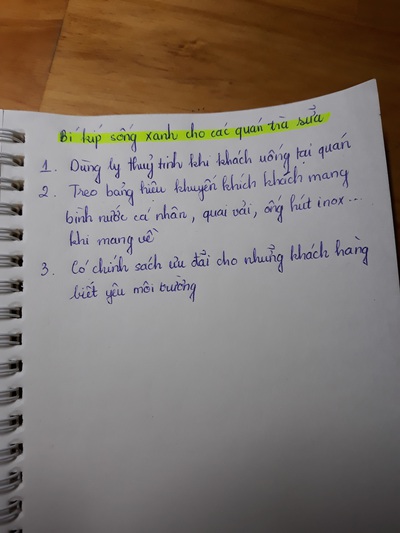 Bí kíp sống xanh cho các quán trà sữa
1. Dùng ly thuỷ tinh khi khách uống tại quán
2. Treo bảng hiệu khuyến khích khách mang
bình nước cá nhân, quai vải, ống hút inox...
khi mang về
3. Có chính sách ưu đãi cho những khách hàng
biết yêu môi trường